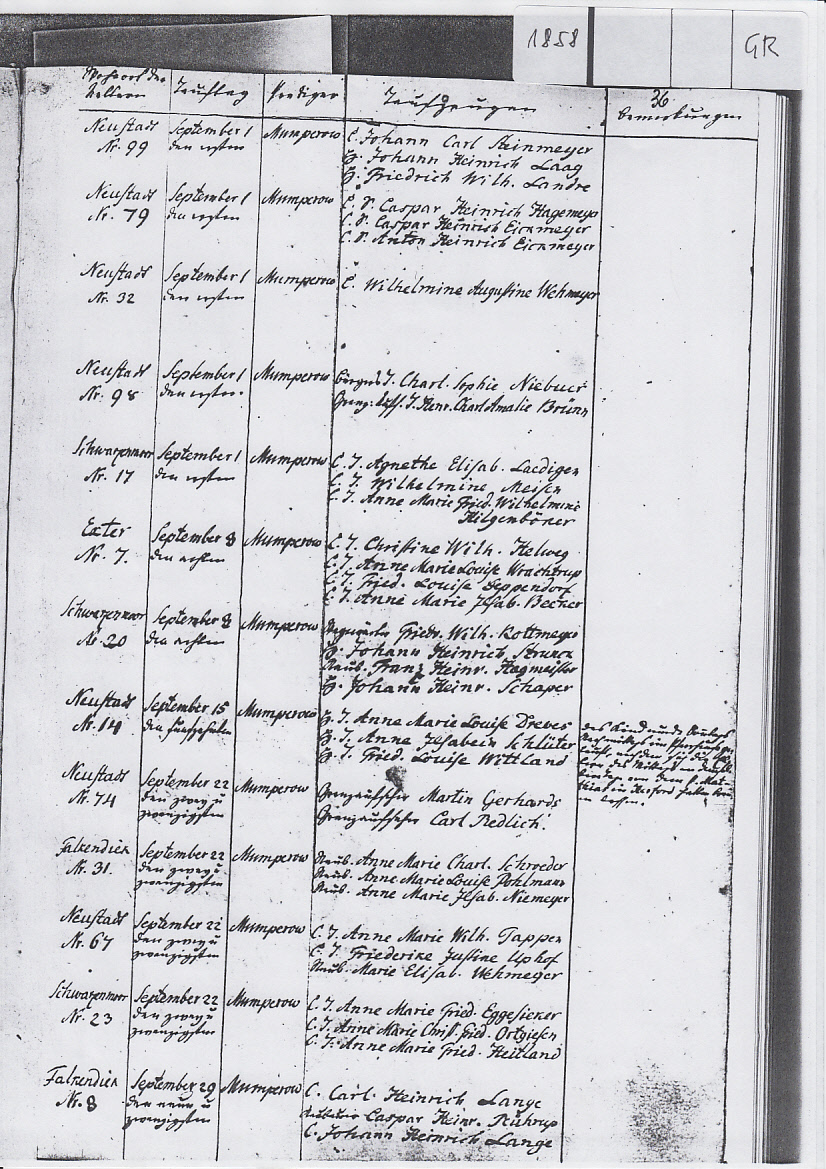 1858
GR
36
Wohnort der Aeltern Tauftag Prediger Taufzeugen Bemerkungen
Neustadt Nr. 99 September 1 den ersten Mumperow
C. Johann Carl Steinmeyer
H. Johann Heinrich Laag
H. Friedrich Wilh. Landre
Neustadt Nr. 79 September 1 den ersten Mumperow
C. S. Caspar Heinrich Hagemeyer
C. S. Caspar Heinrich Eickmeyer
C. S. Anton Heinrich Eickmeyer
Neustadt Nr. 32 September 1 den ersten Mumperow
C. Wilhelmine Augustine Wehmeyer
Neustadt Nr. 98 September 1 den ersten Mumperow
Bürgers T. Charl. Sophie Niebuer
T. Henr. Charl. Amalie Brünn
Schwarzenmoor Nr. 17 September 1 den ersten Mumperow
C. T. Agnethe Elisab. Laedigen
C. T. Wilhelmine Meisen
C. T. Anne Marie Fried. Wilhelmine
Hilgenböner
Exter Nr. 7. September 8 den achten Mumperow
C. T. Christine Wilh. Helweg
C. T. Anne Marie Louise Wrachtrup
C. T. Fried. Louise Deppendorf
C. T. Anne Marie Ilsab. Becker
Schwarzenmoor Nr. 20 September 8 den achten Mumperow
Friedr. Wilh. Kottmeyer
H. Johann Heinrich Strunck
Neub. Franz Heinr. Hagmeister
H. Johann Heinr. Schaper
Neustadt Nr. 14 September 15 den fünfzehnten Mumperow
H. T. Anne Marie Louise Drewes
H. T. Anne Ilsabein Schlüter
H. T. Fried. Louise Wittland
Neustadt Nr. 74 September 22 den zwey u. zwanzigsten Mumperow
Grenzaufseher Martin Gerhards
Grenzaufseher Carl Redlich.
Falkendiek Nr. 31. September 22 den zwey u. zwanzigsten Mumperow
Neub. Anne Marie Charl. Schroeder
Neub. Anne Marie Louise Pohlmann
Neub. Anne Marie Ilsab. Niemeyer
Neustadt Nr. 67 September 22 den zwey u. zwanzigsten Mumperow
C. T. Anne Marie Wilh. Tappen
C. T. Friederike Justine Uphof
Neub. Marie Elisab. Wehmeyer
Schwarzenmoor Nr. 23 September 22 den zwey u. zwanzigsten Mumperow
C. T. Anne Marie Fried. Eggesieker
C. T. Anne Marie Christ. Fried. Ortgiesen
C. T. Anne Marie Fried. Heitland
Falkendiek Nr. 8 September 29 den neun u. zwanzigsten Mumperow
C. Carl Heinrich Lange
Caspar Heinr. Rührup
C. Johann Heinrich Lange